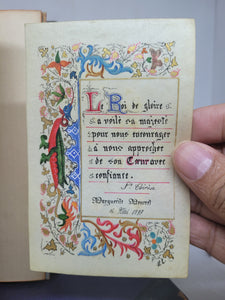 Le Roi de gloire
a voilé sa majesté
pour nous encourager
à nous approcher
de son Cœur avec
confiance.
Marguerite